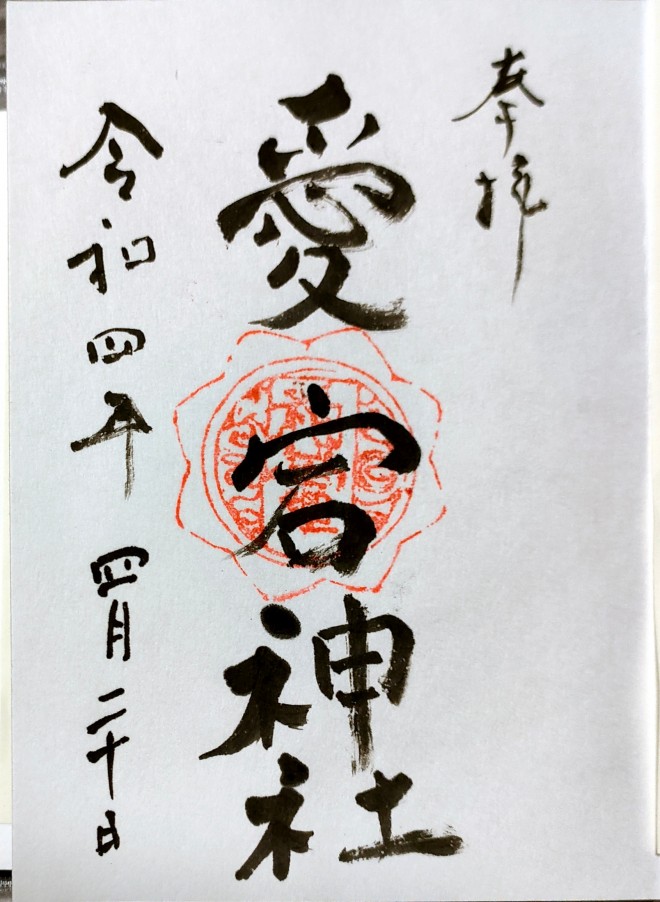 奉拝
愛宕神社
令和四年 四月二十日